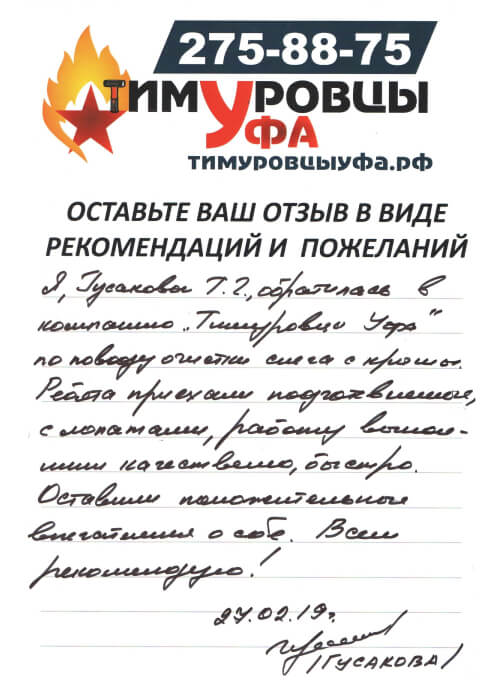 275-88-75
ТИМУРОВЦЫ
УФА
ТИМУРОВЦЫУФА.РФ
ОСТАВЬТЕ ВАШ ОТЗЫВ В ВИДЕ
РЕКОМЕНДАЦИЙ И ПОЖЕЛАНИЙ
Я, Гусакова Т.Г., обратилась в
компанию „Тимуровцы Уфа"
по поводу очистки снега с крыши.
Ребята приехали подготовленные,
с лопатами, работу выпол-
нили качественно, быстро.
Оставили положительные
впечатления о себе. Всем
рекомендую!
27.02.19г.
/ГУСАКОВА/